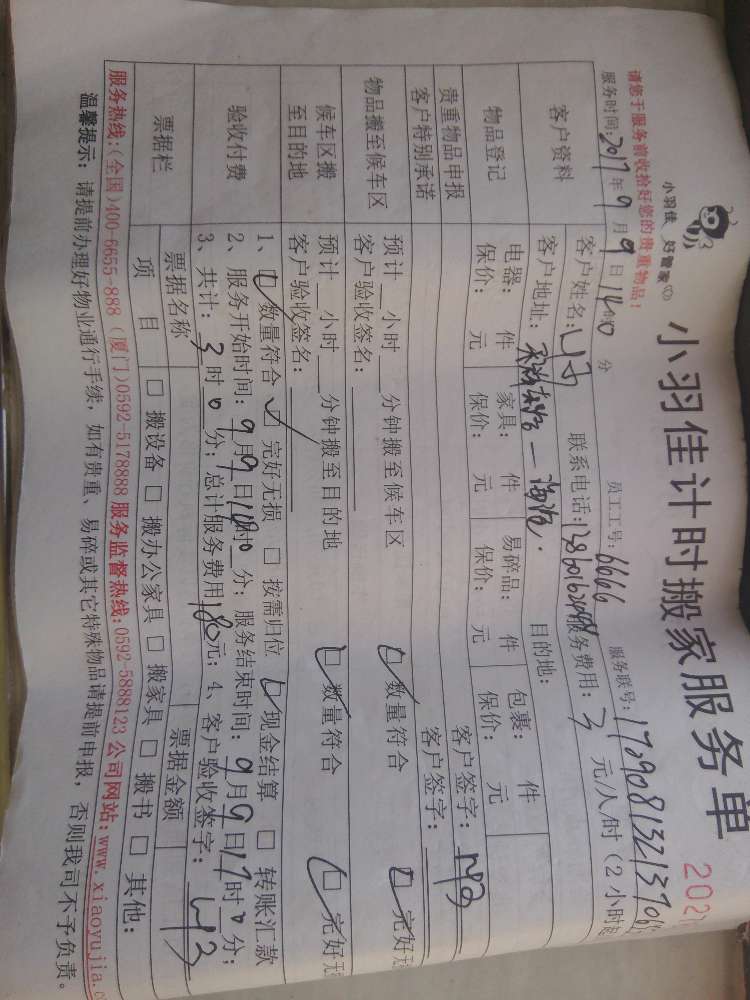 小羽佳 好管家
小羽佳计时搬家服务单
202
请您于服务前收拾好您的贵重物品!
员工工号: 6666 服务联号:
服务时间: 2017年9月9日14时00分
客户资料
客户姓名: 联系电话: 服务费用: 3 元/人/时 (2小时起
客户地址: 目的地:
物品登记
电器: 件 家具: 件 易碎品: 件 包裹: 件
保价: 元 保价: 元 保价: 元 保价: 元
贵重物品申报 客户签字:
客户特别承诺 客户签字:
物品搬至候车区
预计__小时__分钟搬至候车区 □数量符合 □完好无
客户验收签名:
候车区搬
至目的地
预计__小时__分钟搬至目的地 □数量符合 □完好无
客户验收签名:
验收付费
1、□数量符合 □完好无损 □按需归位 □现金结算 □转账汇款
2、服务开始时间: 9月9日 时0分; 服务结束时间: 9月9日17时0分;
3、共计: 3时0分; 总计服务费用180元; 4、客户验收签字:
票据栏
票据名称 票据金额
项目 □搬设备 □搬办公家具 □搬家具 □搬书 □其他:
服务热线:(全国)400-6655-888 (厦门)0592-5178888 服务监督热线:0592-5888123 公司网站:www.xiaoyujia.c
温馨提示: 请提前办理好物业通行手续, 如有贵重、易碎或其它特殊物品请提前申报, 否则我司不予负责。